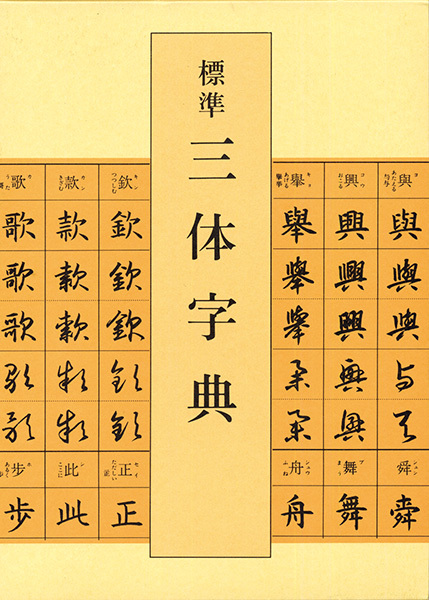 標準
三体字典
與 ヨ あたえる
與
與
與
與
與
舜 シュン
舜
興 コウ おこる
興
興
興
興
興
舞 ブ まう
舞
舉 キョ あげる
舉
舉
舉
舉
舉
舟 シュウ ふね
舟
欽 キン つつしむ
欽
欽
欽
欽
欽
正 セイ ただしい
正
款 カン きざむ
款
款
款
款
款
此 シ ここに
此
歌 カ うた
歌
歌
歌
歌
歌
歩 ホ あるく
歩